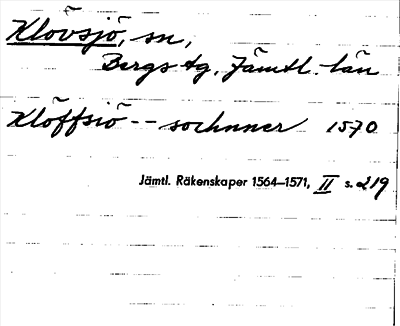 Klövsjö, sn,
Bergs tg, Jämtl. län
Klöffsiö -- sochnner 1570
Jämtl. Räkenskaper 1564–1571, II s. 219